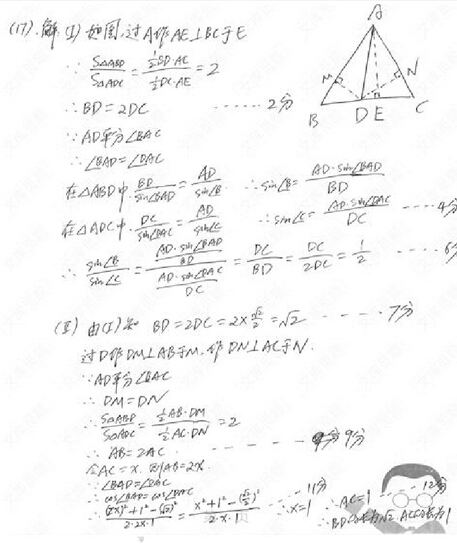 (17). 解(I) 如图, 过A作AE⊥BC于E
∵ S△ABD/S△ADC = (½BD·AE)/(½DC·AE) = 2
∴ BD=2DC ······2分
∵ AD平分∠BAC
∴ ∠BAD=∠DAC
在△ABD中 BD/sin∠BAD = AD/sin∠B ∴ sin∠B = AD·sin∠BAD/BD
在△ADC中, DC/sin∠DAC = AD/sin∠C ∴ sin∠C = AD·sin∠DAC/DC ····4分
∴ sin∠B/sin∠C = (AD·sin∠BAD/BD)/(AD·sin∠DAC/DC) = DC/BD = DC/2DC = 1/2 ····6分
A
M
N
B
D E
C
(II) 由(I)知 BD=2DC=2×√2/2=√2 ·····7分
过D作DM⊥AB于M, 作DN⊥AC于N.
∵ AD平分∠BAC
∴ DM=DN
∴ S△ABD/S△ADC = (½AB·DM)/(½AC·DN) = 2
∴ AB=2AC ······9分
令AC=x, 则AB=2x
∵ ∠BAD=∠DAC
∴ cos∠BAD=cos∠DAC
∴ ((2x)²+1²-(√2)²)/(2·2x·1) = (x²+1²-(√2/2)²)/(2·x·1) ∴ x=1 11分
∴ AC=1 12分
∴ BD的长为√2, AC的长为1